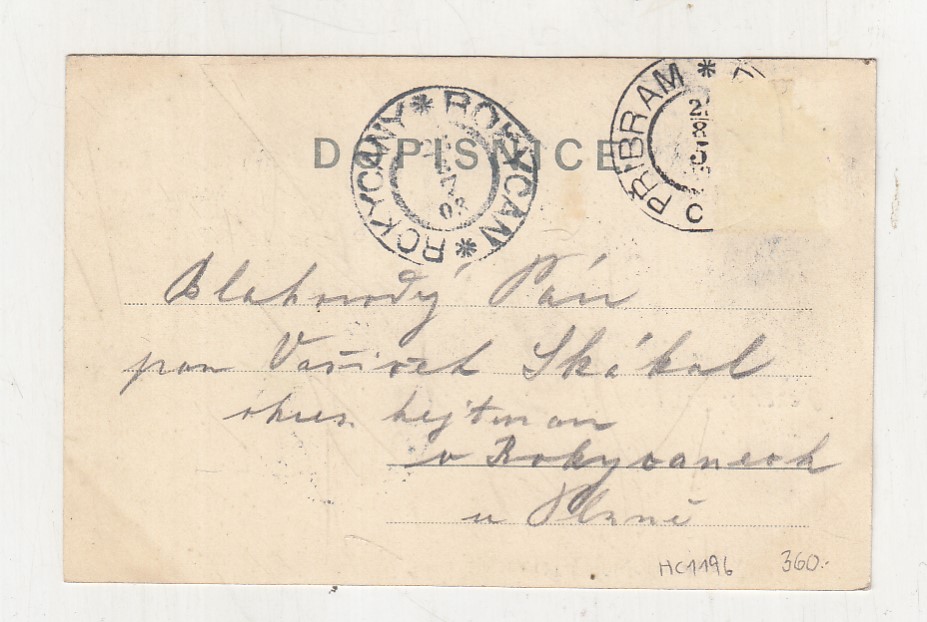 DOPISNICE
ROKYCANY * ROKYCAN *
PŘÍBRAM *
Blahorodý Pán
pan Vašíček Skákal
okres. hejtman
v Rokycanech
u Plzně
HC1196 360.-